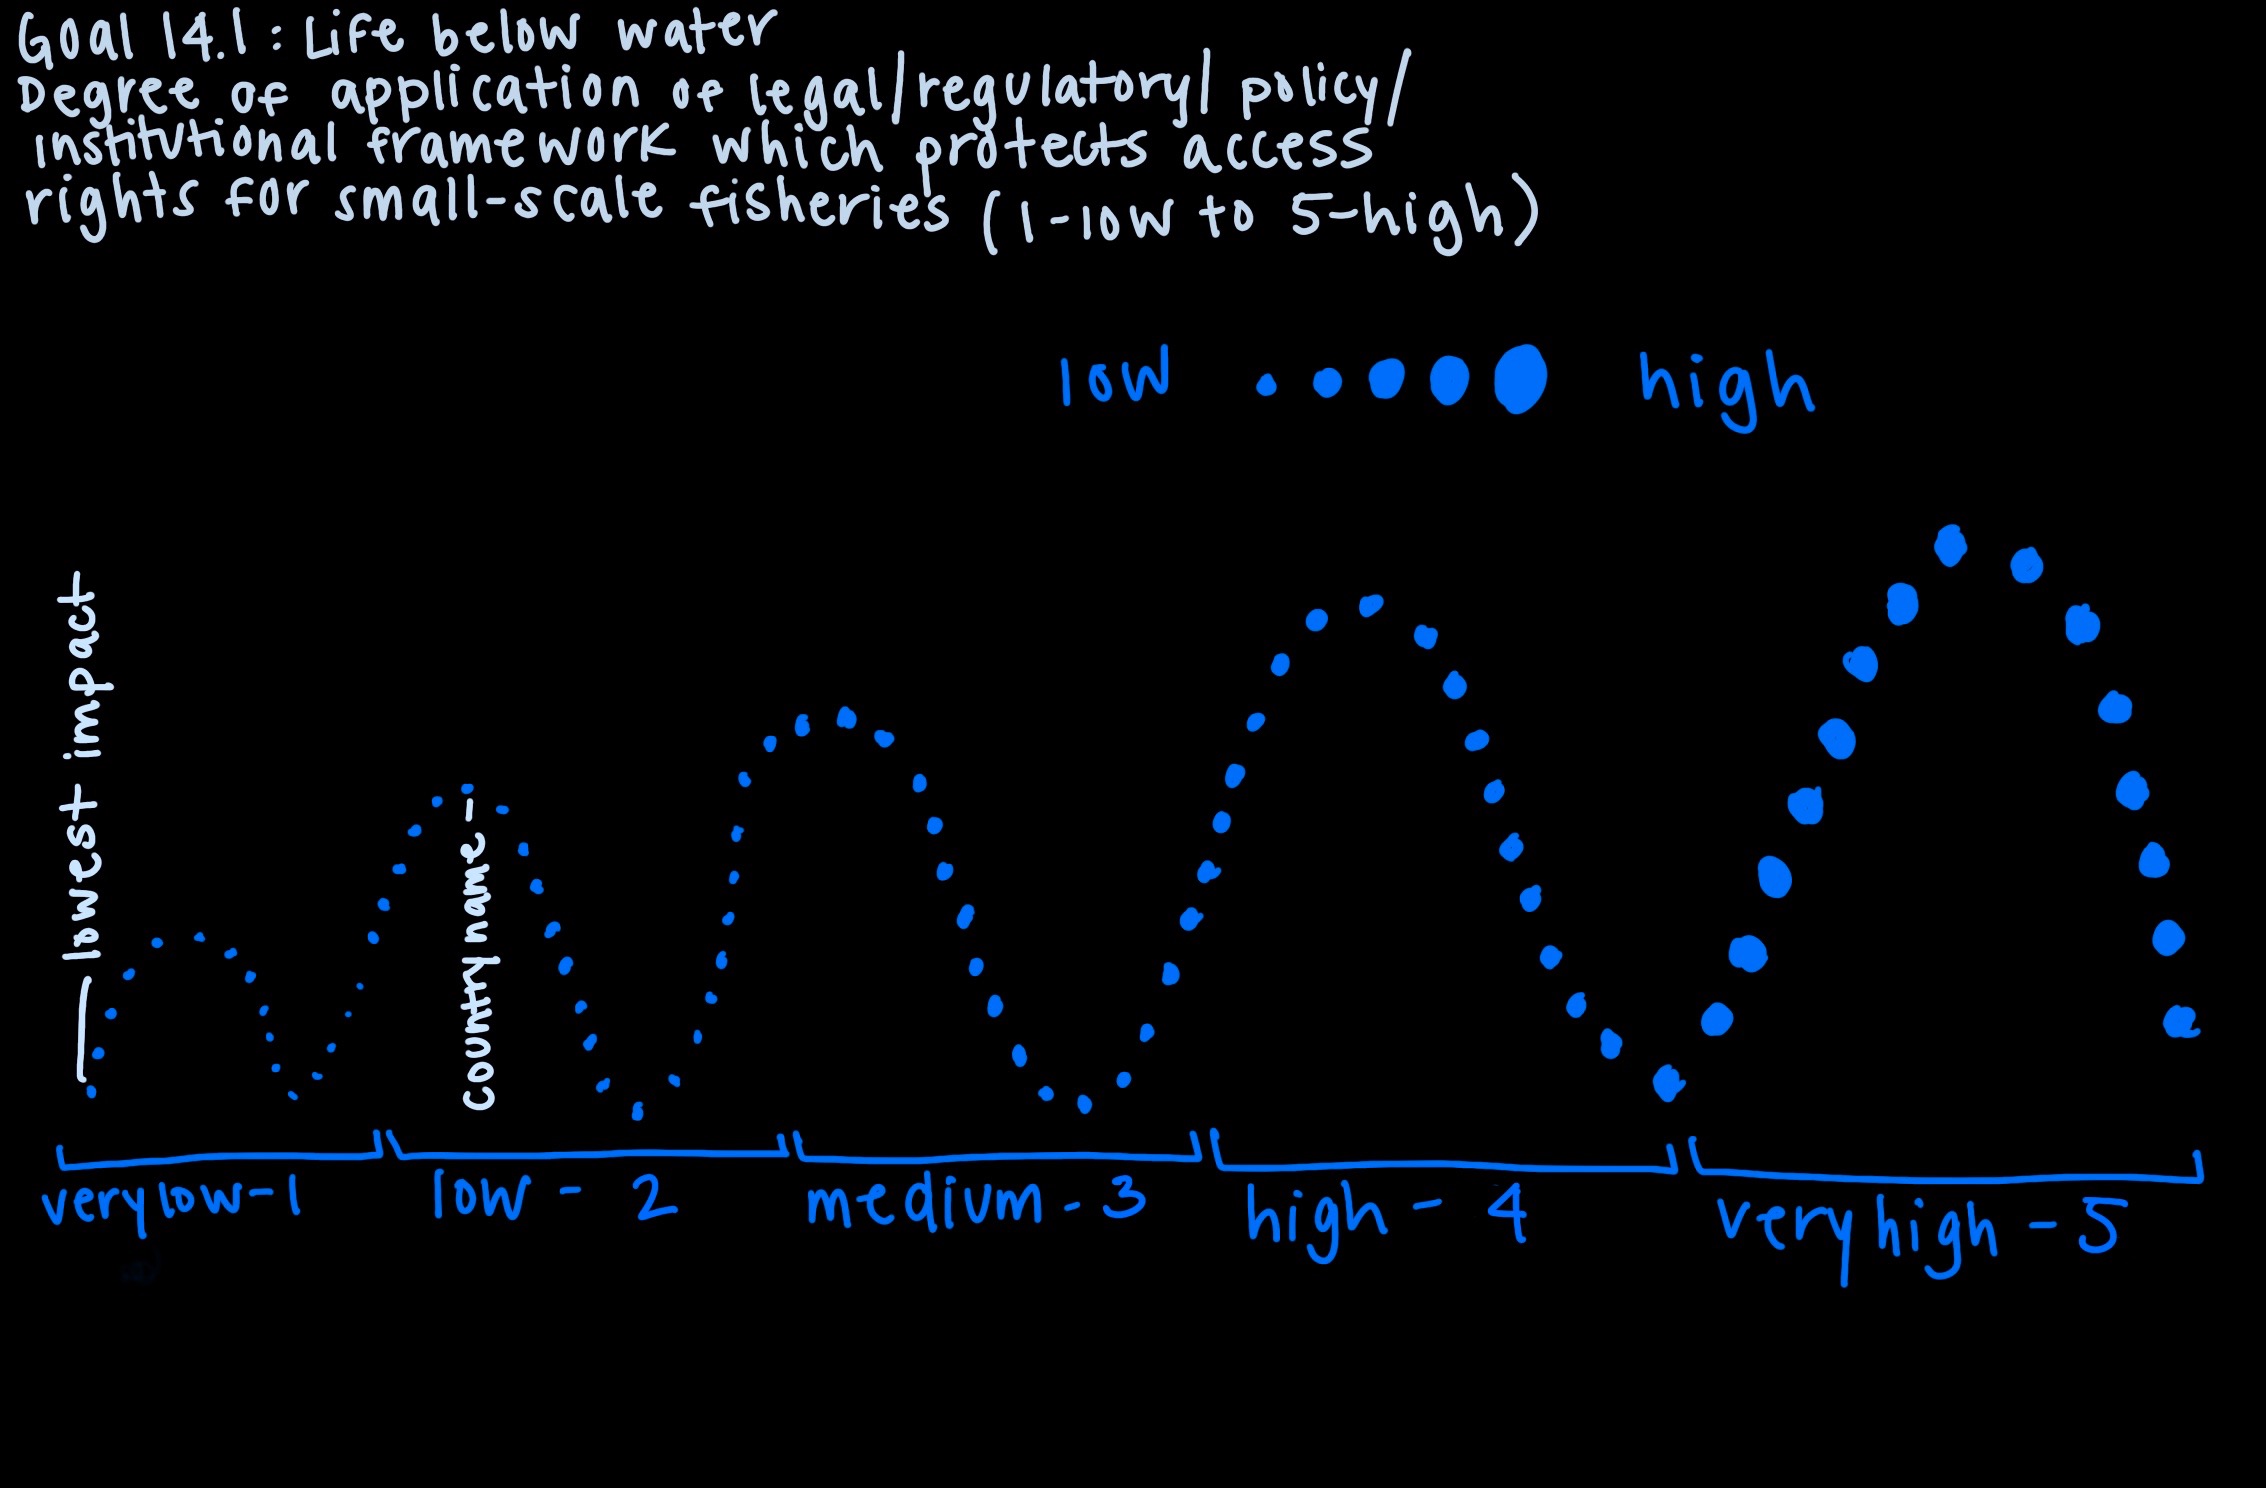 Goal 14.1: Life below water
Degree of application of legal/regulatory/policy/
institutional framework which protects access
rights for small-scale fisheries (1-low to 5-high)
low high
lowest impact
country name -
very low-1 low - 2 medium - 3 high - 4 very high - 5